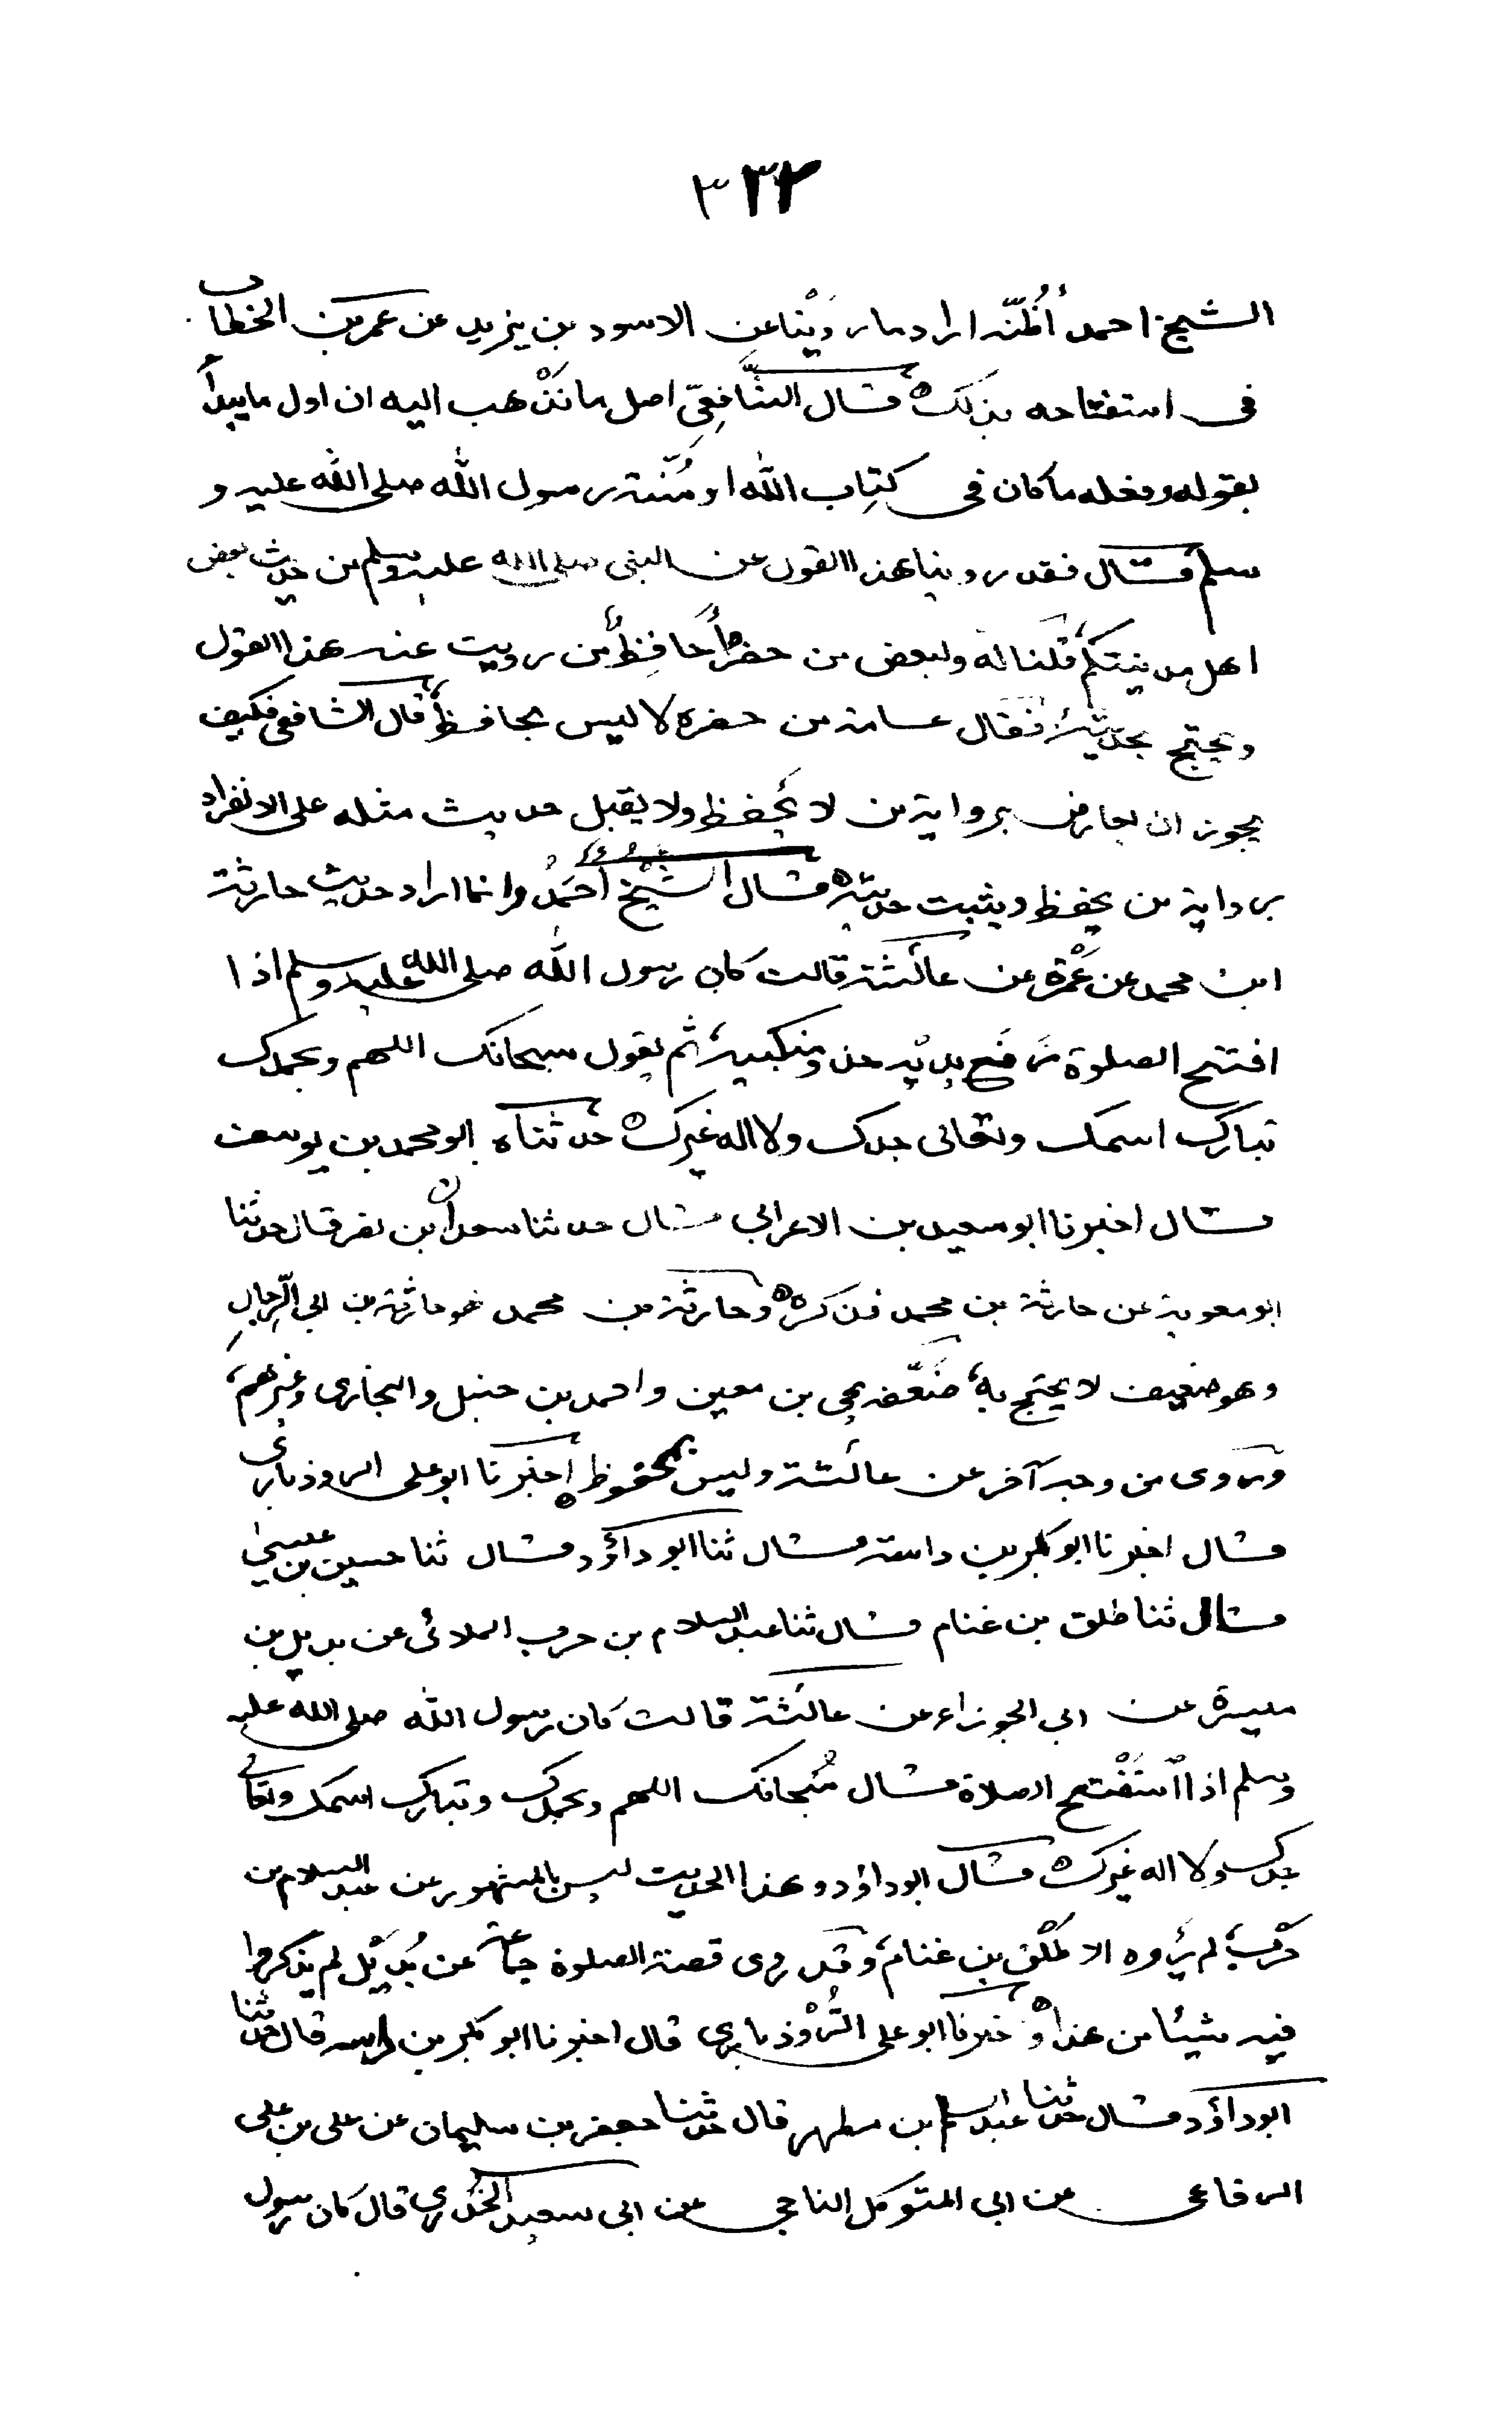 ٣٣٢
الشيخ احمد اُظُنّه اراد ما روَيْنا عن الاسود بن يزيد عن عمر بن الخطاب
فى استفتاحه بذلك قال الشَّافِعِيّ اصل ما نَذْهب اليه ان اول ما يبدأ
بقوله وفعله ما كان فى كتاب الله او سُنّة رسول الله صلى الله عليه و
سلم قال فقد روينا هذا القول عن النبى صلى الله عليه وسلم من حديث بعض
اهل مدينتكم قلنا له ولبعض من حضره أحافِظٌ من رويت عنه هذا القول
ويحتج بحديثه فقال عامة من حضره لا ليس بحافظ قال الشافعى فكيف
يجوز ان يعارض برواية من لا يُحفظ ولا يقبل حديث مثله على الانفراد
برواية من يحفظ ويثبت حديثه قال الشيْخُ أحمَدُ وانما اراد حديث حارثة
ابن محمد عن عَمْرَة عن عائشة قالت كان رسول الله صلى الله عليه وسلم اذا
افتتح الصلوة رَفَع يديْه حذو منكبيه ثم يقول سبحانك اللهم وبحمدك
تبارك اسمك وتعالى جدك ولا اله غيرك حدثناه ابو محمد بن يوسف
قال اخبرنا ابو سعيد بن الاعرابى قال حدثنا سعدان بن نصر قال حدثنا
ابو معوية عن حارثة بن محمد فذكره وحارثة بن محمد هو حارثة بن ابى الرِّجالِ
وهو ضعيف لا يحتج به ضَعَّفه يحيى بن معين واحمد بن حنبل والبخارى وغيرهم
وروى من وجه آخر عن عائشة وليس بمحفوظ اخبرنا ابو على الروذبارى
قال اخبرنا ابو بكر بن داسة قال ثنا ابو داؤد قال ثنا حسين بن عيسىٰ
قال ثنا طلق بن غنام قال ثنا عبد السلام بن حرب الملائى عن بديل بن
ميسرة عن ابى الجوزاء عن عائشة قالت كان رسول الله صلى الله عليه
وسلم اذا استَفْتح الصلاة قال سُبحانك اللهم وبحمدك وتبارك اسمك وتعالى
جدك ولا اله غيرك قال ابو داؤد وهذا الحديث ليس بالمشهور عن عبد السلام بن
حَرْب لم يَروه الا طَلْق بن غنام وقد روى قصة الصلوة جماعة عن بُدَيْل لم يذكروا
فيه شيئا من هذا واخبرنا ابو على الرُّوْذبارى قال اخبرنا ابو بكر بن داسه قال حدثنا
ابو داؤد قال حدثنا عبد السلام بن مطهر قال حدثنا جعفر بن سليمان عن على بن على
الرفاعى عن ابى المتوكل الناجى عن ابى سعيد الخُدْرى قال كان رسول